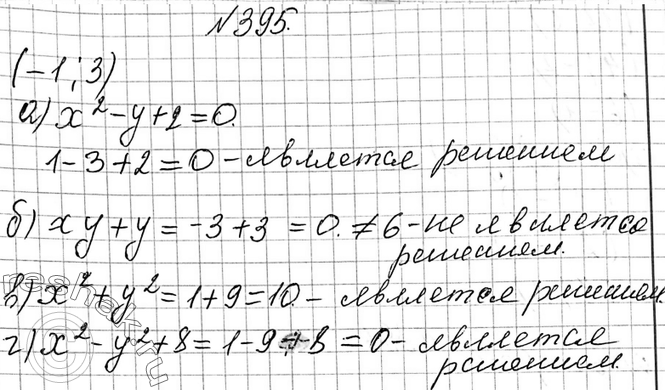 №395.
(-1; 3)
а) x² - y + 2 = 0.
1 - 3 + 2 = 0 - является решением
б) xy + y = -3 + 3 = 0. ≠ 6 - не является
решением.
в) x² + y² = 1 + 9 = 10 - является решением
г) x² - y² + 8 = 1 - 9 + 8 = 0 - является
решением.